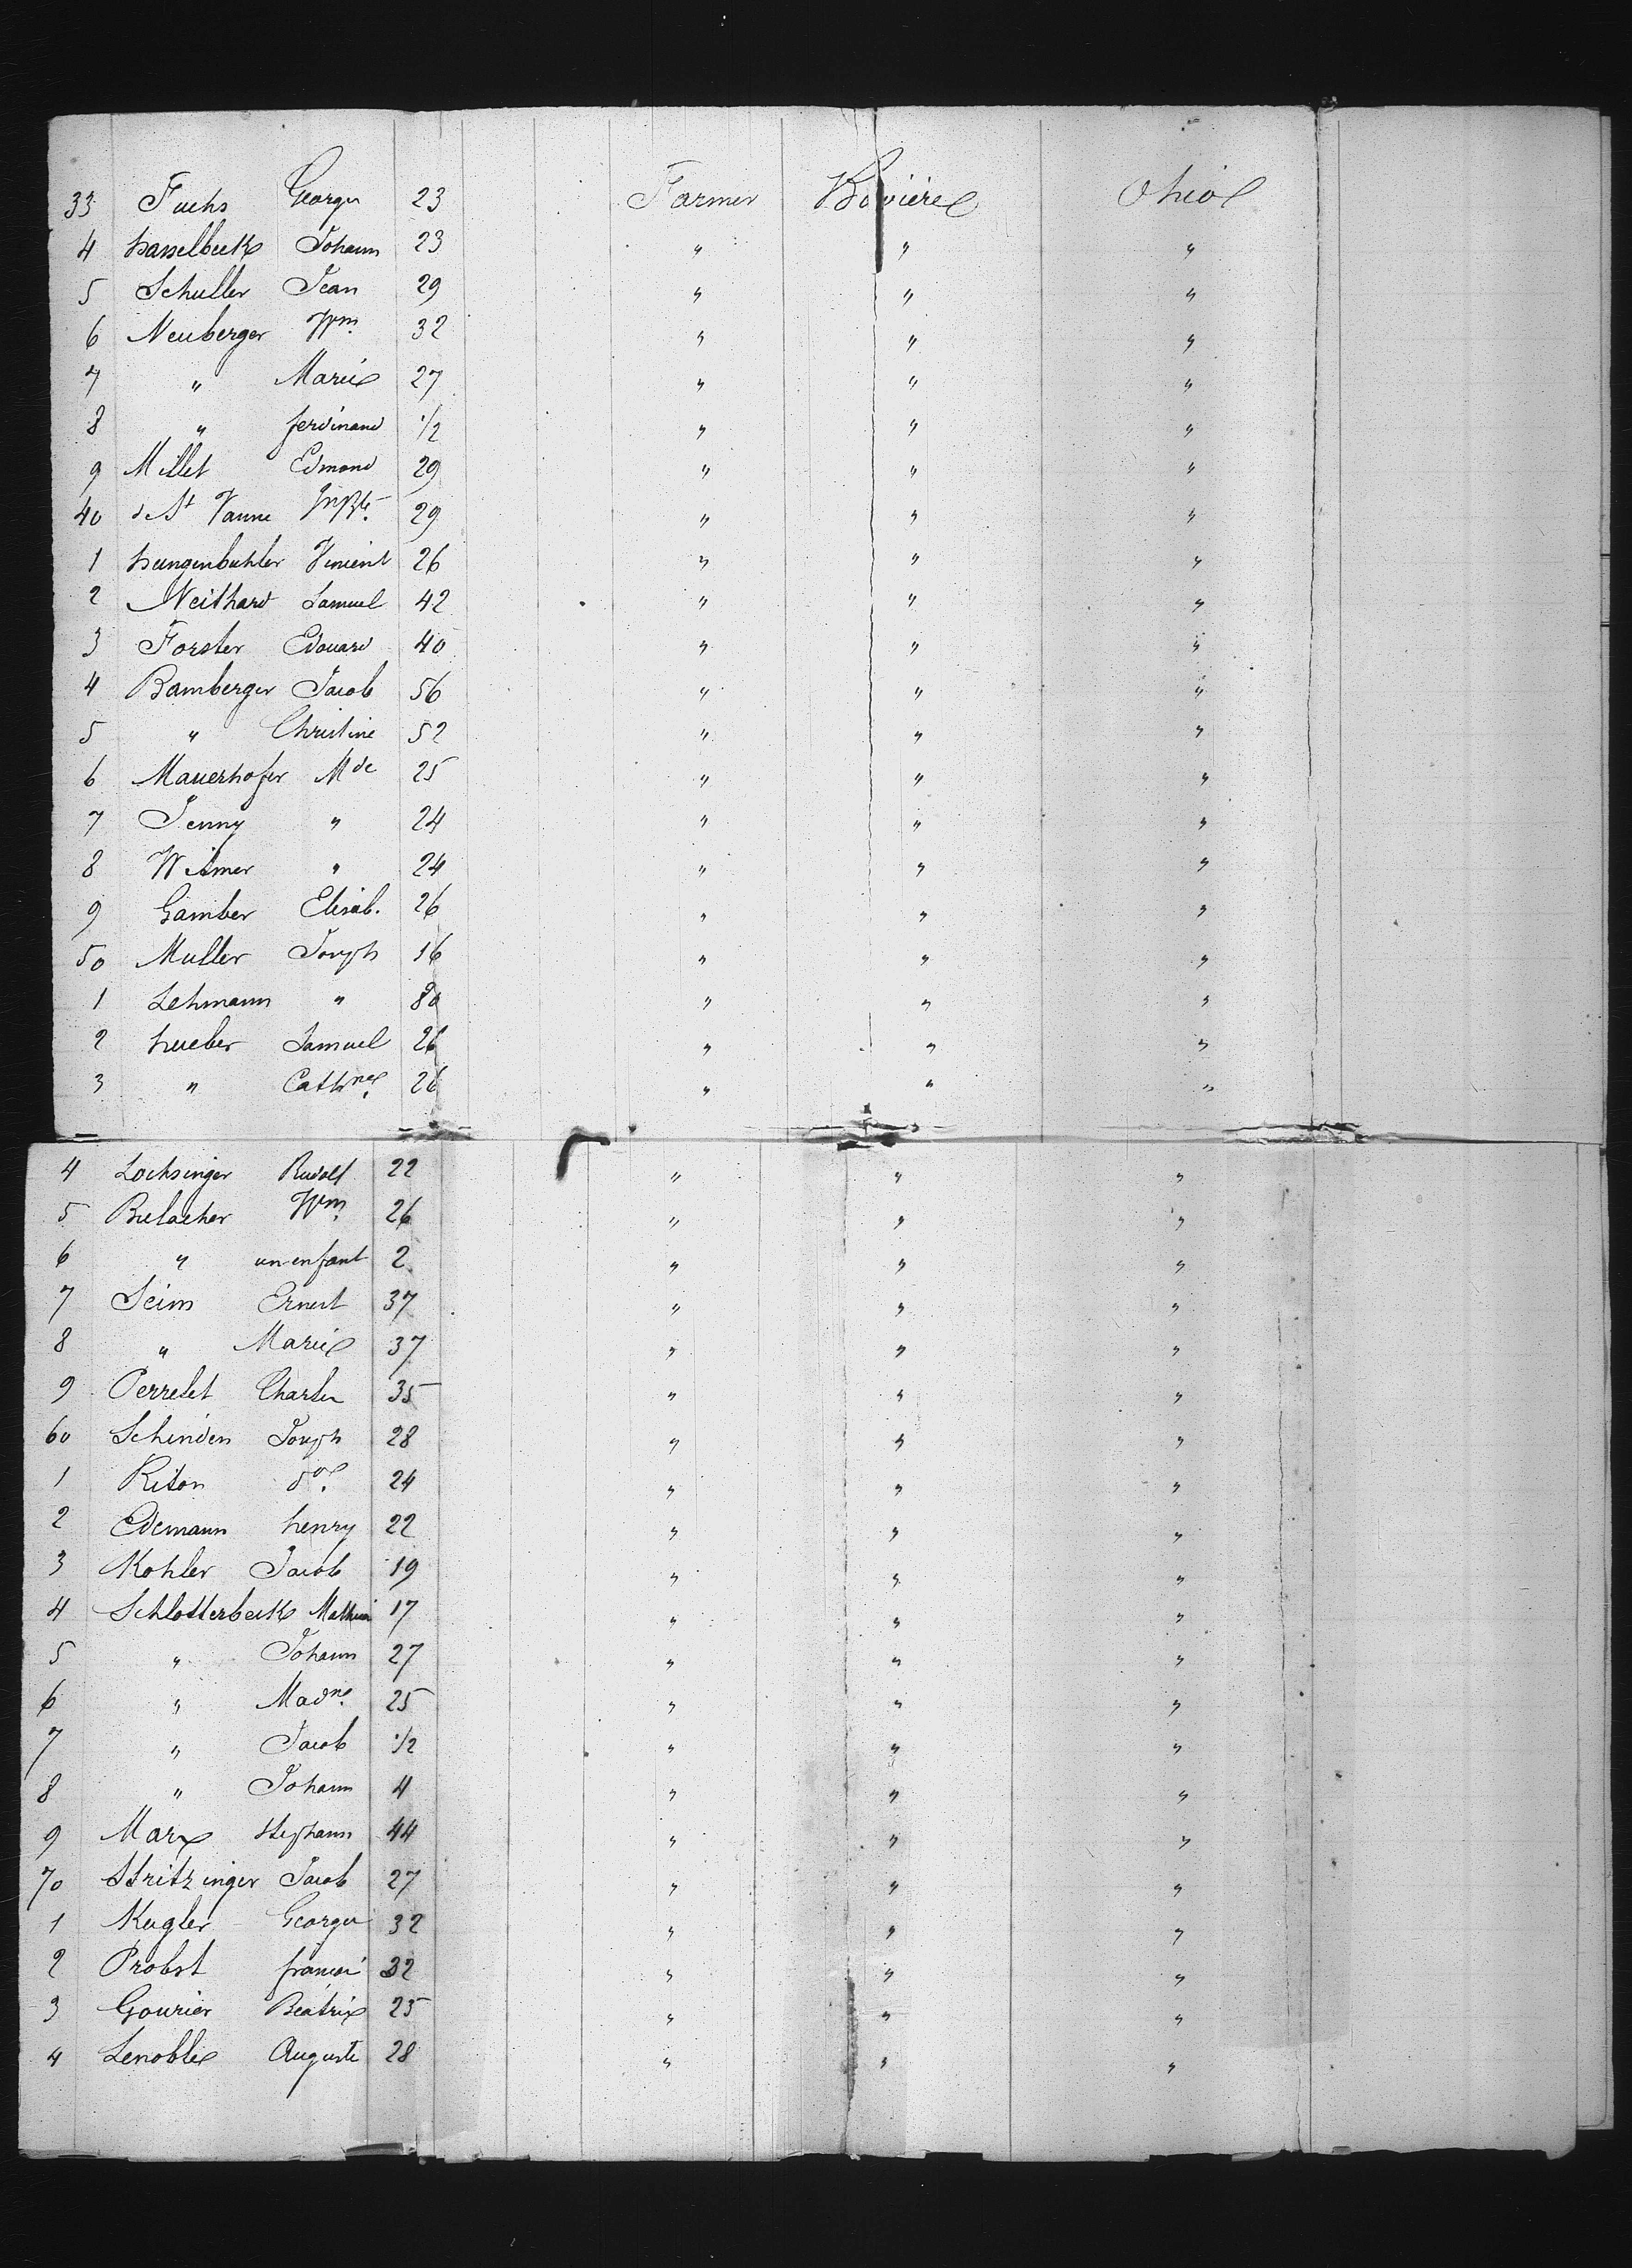 33 Fuchs George 23 Farmer Bavière Ohio
4 hasselbeck Johann 23 " " "
5 Schuller Jean 29 " " "
6 Neuberger Wm 32 " " "
7 " Marie 27 " " "
8 " ferdinand 1/2 " " "
9 Millet Edmond 29 " " "
40 de St Vanne 29 " " "
1 hungenbuhler Vincent 26 " " "
2 Neithard Samuel 42 " " "
3 Forster Edouard 40 " " "
4 Bamberger Jacob 56 " " "
5 " Christine 52 " " "
6 Mauerhofer Mde 25 " " "
7 Jenny " 24 " " "
8 Witmer " 24 " " "
9 Gamber Elisab. 26 " " "
50 Muller Joseph 16 " " "
1 Lehmann " 80 " " "
2 hueber Samuel 26 " " "
3 " Cathne 26 " " "
4 Lochsinger Rudolf 22 " " "
5 Bulacher Wm 26 " " "
6 " un enfant 2 " " "
7 Seim Ernest 37 " " "
8 " Marie 37 " " "
9 Perrelet Charles 35 " " "
60 Schinden Joseph 28 " " "
1 Riton do. 24 " " "
2 Edemann henry 22 " " "
3 Kohler Jacob 19 " " "
4 Schlotterbeck 17 " " "
5 " Johann 27 " " "
6 " Madne 25 " " "
7 " Jacob 1/2 " " "
8 " Johann 4 " " "
9 Marx Stephann 44 " " "
70 Stritzinger Jacob 27 " " "
1 Kugler George 32 " " "
2 Probst françois 32 " " "
3 Gourier Beatrix 25 " " "
4 Lenoble Auguste 28 " " "